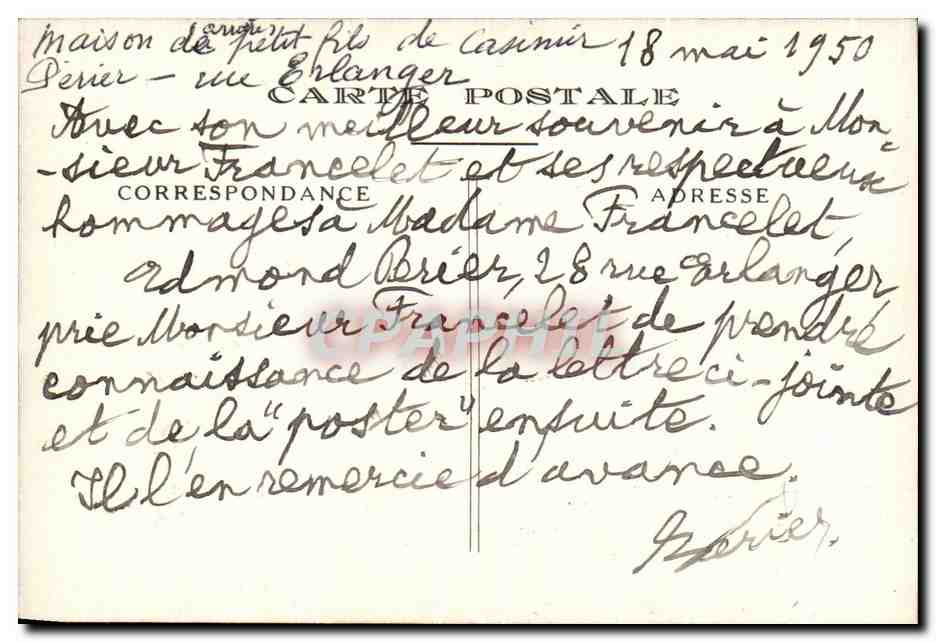 Maison de l'arrière petit fils de Casimir 18 mai 1950
Périer - rue Erlanger
CARTE POSTALE
Avec son meilleur souvenir à Mon-
-sieur Francelet et ses respectueux
CORRESPONDANCE ADRESSE
hommages à Madame Francelet,
Edmond Brier, 28 rue Erlanger,
prie Monsieur Francelet de prendre
CPAPHIL
connaissance de la lettre ci-jointe
et de la "poster" ensuite.
Il l'en remercie d'avance.